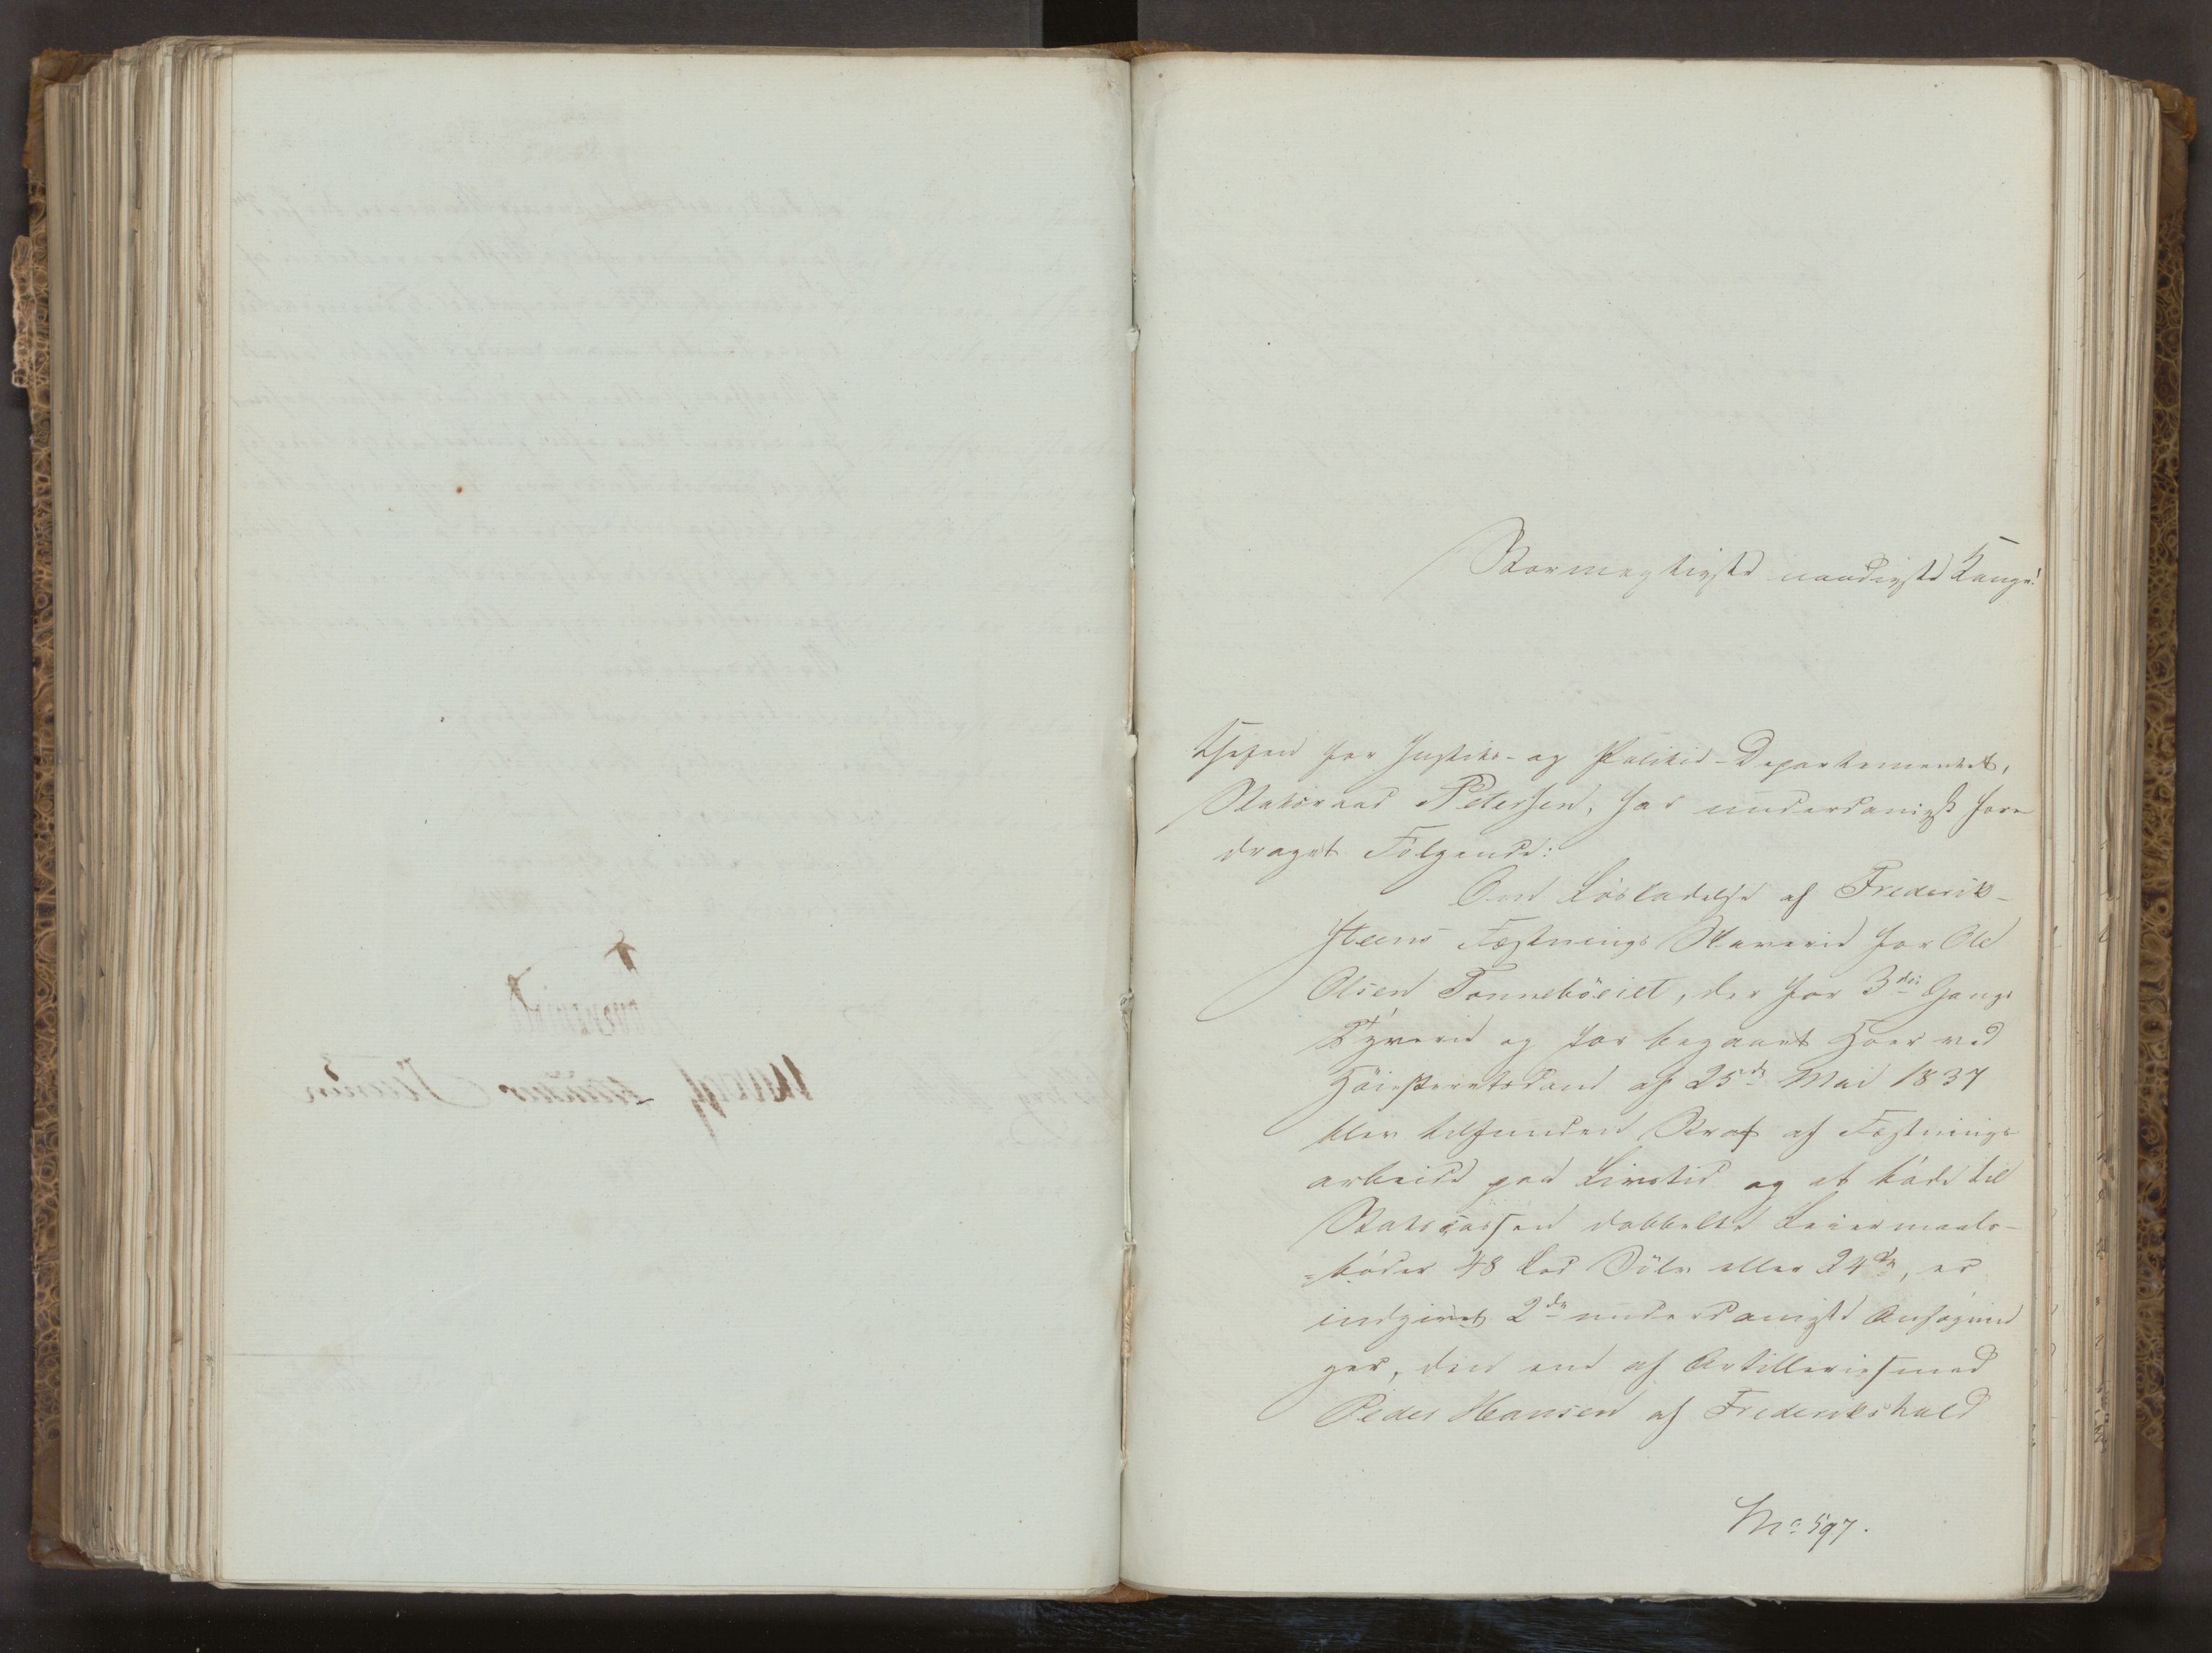 Stormægtigste naadigste Konge!
Chefen for Justits- og Politie-Departementet,
Statsraad Petersen, har underdanigst fore-
draget Følgende:
Om Løsladelse af Frederik-
steens Fæstnings Slaverie for Ole
Olsen Tonnebøeiet, der for 3die Gangs
Tyverie og for begaaet Hoer ved
Höiesteretsdom af 25de Mai 1837
blev tilfunden Straf af Fæstnings-
arbeide paa Livstid og at bøde til
Statscassen dobbelte Leiermaals-
=bøder 48 Lod Sölv eller 24 , er
indgivet 2de underdanigste Ansøgnin
ger, den ene af Artilleriesmed
Peder Hansen af Frederikshald
No 597.